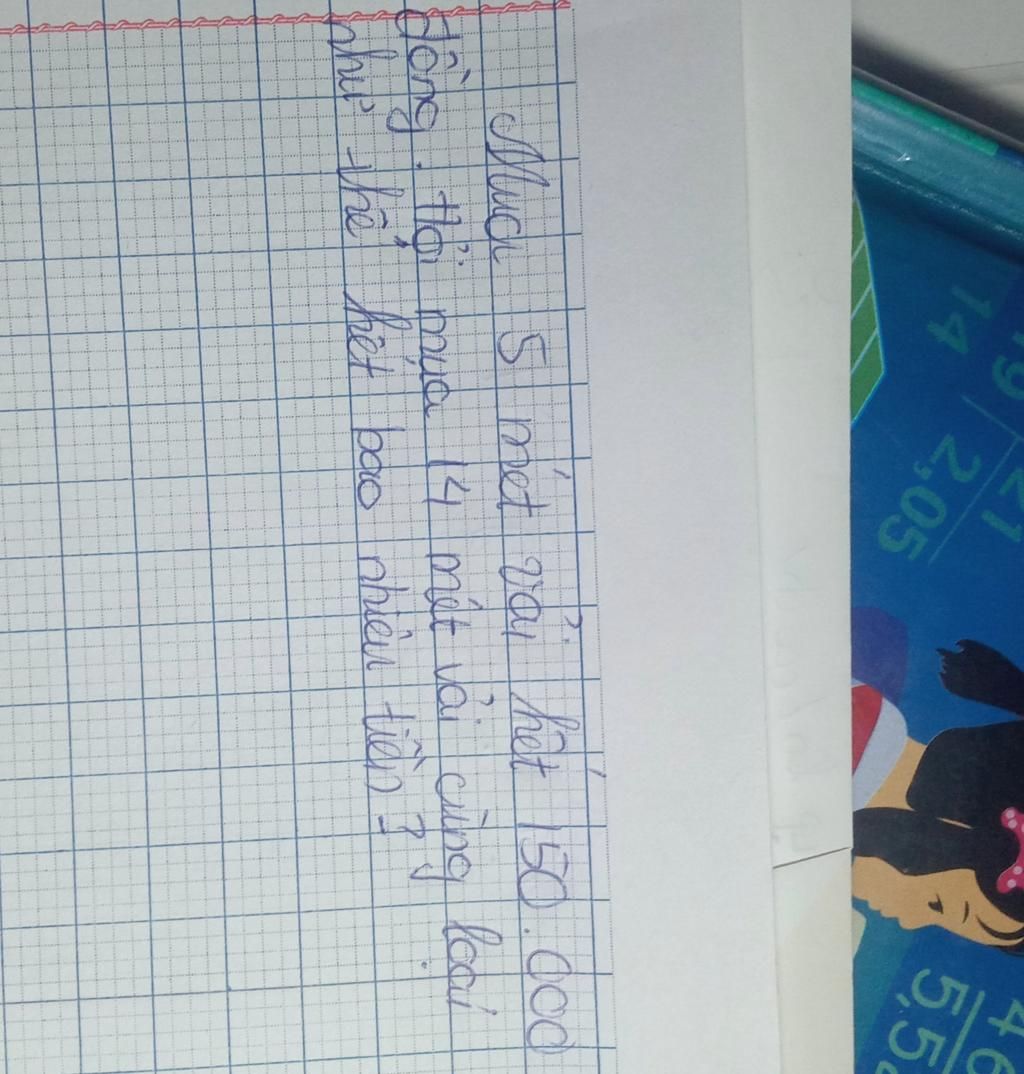 Mua 5 mét vải hết 150.000
đồng. Hỏi mua 14 mét vải cùng loại
như thế hết bao nhiêu tiền?
19 21
14 2,05
46
5,5